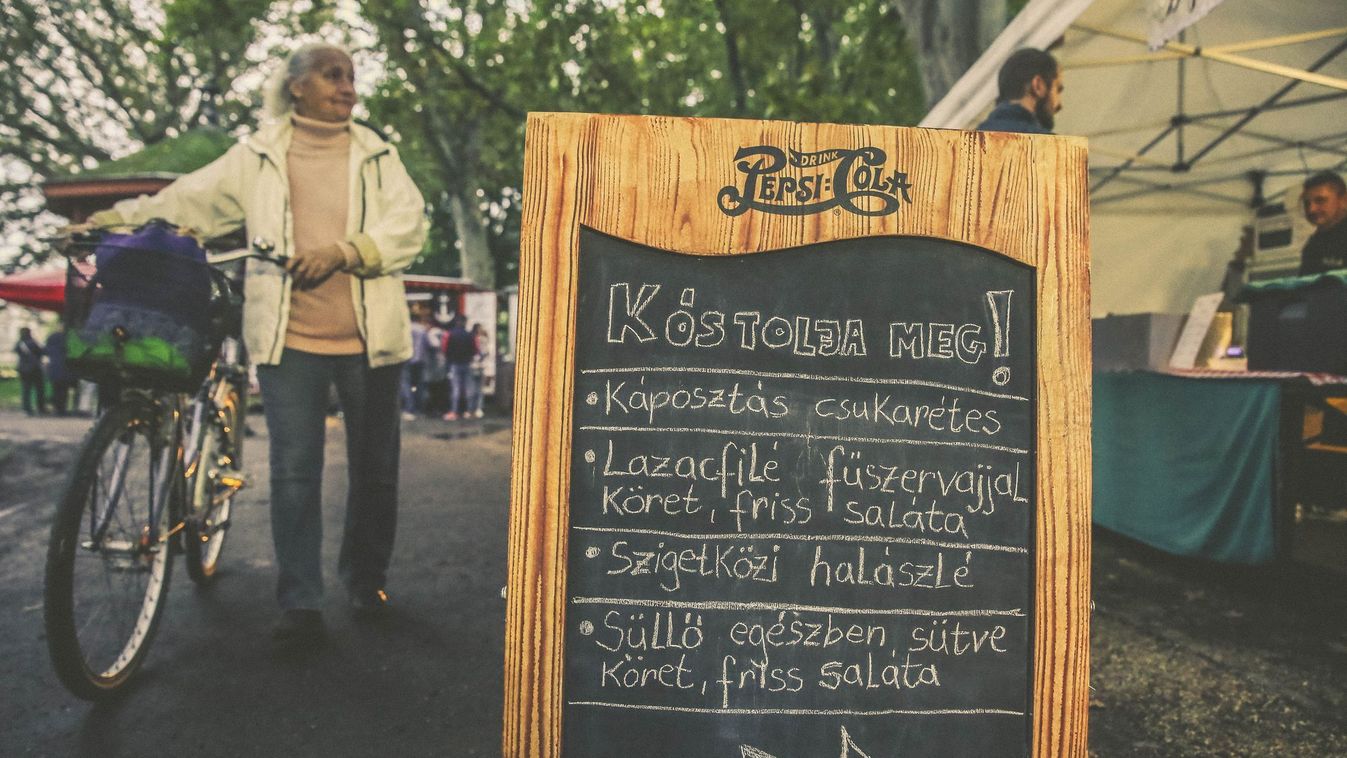 DRINK
PEPSI:COLA
KÓSTOLJA MEG!
• Káposztás csukarétes
• Lazacfilé fűszervajjal
Köret, friss saláta
• Szigetközi halászlé
• Süllő egészben sütve
Köret, friss saláta